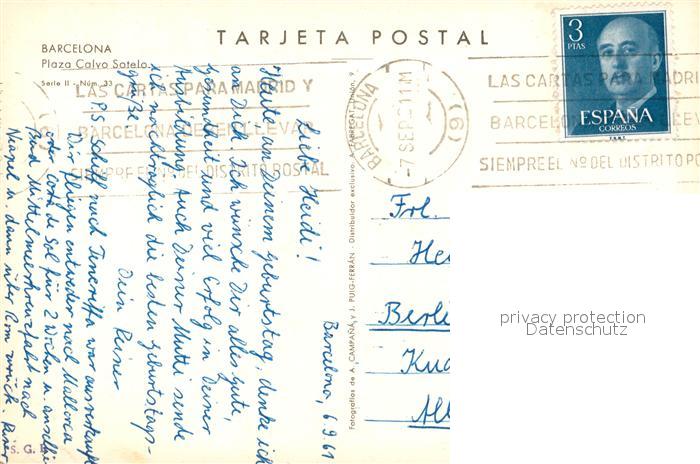 TARJETA POSTAL
BARCELONA
Plaza Calvo Sotelo
Serie II - Núm. 33
LAS CARTAS PARA MADRID Y
BARCELONA DEBEN LLEVAR
SIEMPRE EL Nº DEL DISTRITO POSTAL
BARCELONA
-7 SEP
(6)
LAS CARTAS PARA MADRI
BARCELONA DEBEN LLEVA
SIEMPRE EL Nº DEL DISTRITO PO
3
PTAS
ESPAÑA
CORREOS
F.N.M.T.
Barcelona, 6.9.61
Liebe Heidi!
Heute an Deinem Geburtstag, denke ich
an Dich. Ich wünsche Dir alles Gute,
Gesundheit und viel Erfolg in Deiner
Ausbildung. Auch Deiner Mutti sende
ich nachträglich die besten Geburtstags-
grüße
Dein Reiner
P.S. Schiff nach Teneriffa war ausverkauft
Wir fliegen entweder nach Mallorca
oder Costa de Sol für 2 Wochen u. anschl
Mittelmeerrundfahrt nach
Neapel u. dann über Rom zurück. Reiner
Fotografías de A. CAMPAÑÁ y J. PUIG-FERRÁN - Distribuidor exclusivo: A. ZABREGAT Unión, 9.
Frl.
He
Berli
Kna
All
S. G.
privacy protection
Datenschutz